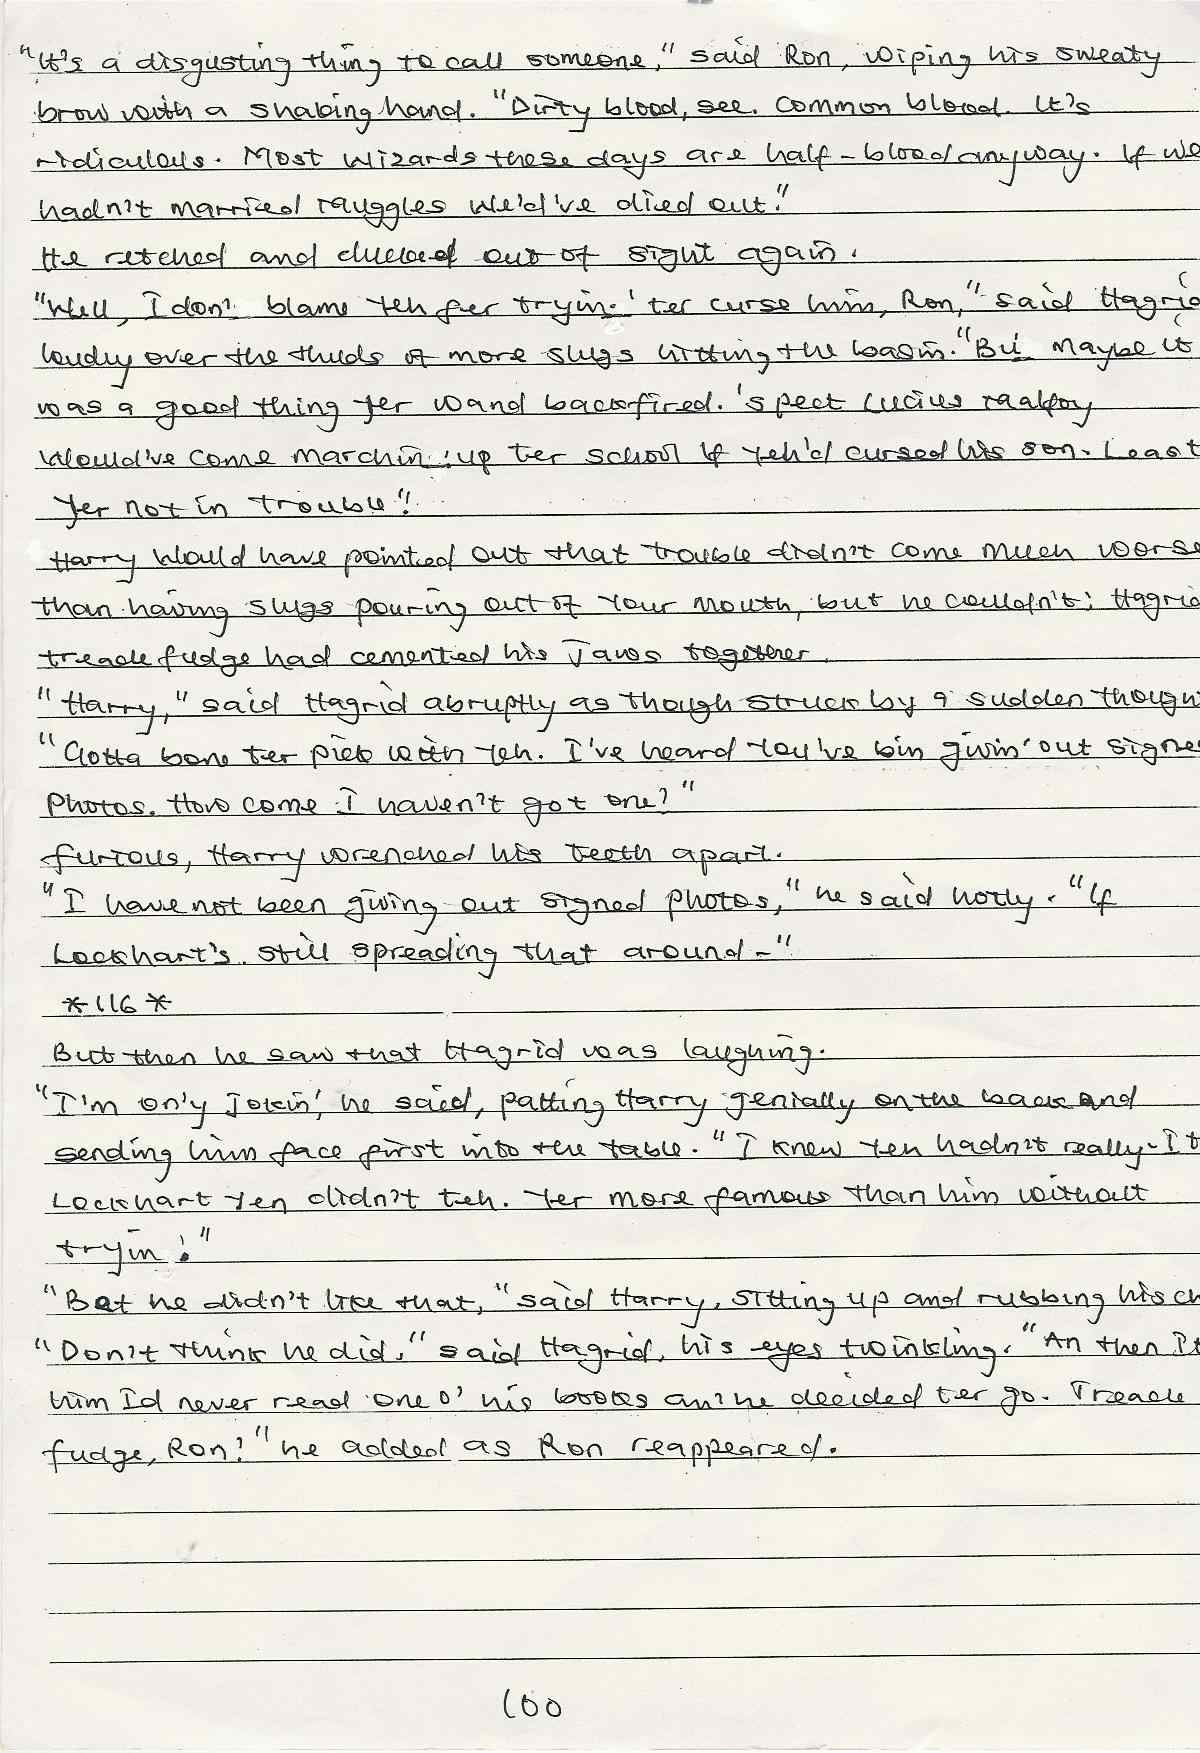 "It's a disgusting thing to call someone," said Ron, wiping his sweaty
brow with a shaking hand. "Dirty blood, see. Common blood. It's
ridiculous. Most wizards these days are half-blood anyway. If we
hadn't married muggles we'd've died out."
He retched and ducked out of sight again.
"Well, I don' blame yeh fer tryin' ter curse him, Ron," said Hagrid
loudly over the thuds of more slugs hitting the basin. "Bu' maybe it
was a good thing yer wand backfired. 'spect Lucius malfoy
would've come marchin' up ter school if yeh'd cursed his son. Least
yer not in trouble."
Harry would have pointed out that trouble didn't come much worse
than having slugs pouring out of your mouth, but he couldn't; Hagrid
treacle fudge had cemented his Jaws together.
"Harry," said Hagrid abruptly as though struck by a sudden though
"Gotta bone ter pick with yeh. I've heard you've bin givin' out signe
Photos. How come I haven't got one?"
furious, Harry wrenched his teeth apart.
"I have not been giving out signed photos," he said hotly. "If
Lockhart's still spreading that around-"
*116*
But then he saw that Hagrid was laughing.
"I'm on'y Jokin', he said, patting Harry genially on the back and
sending him face first into the table. "I knew yeh hadn't really-I t
Lockhart yeh didn't teh. Yer more famous than him without
tryin'."
"Bet he didn't like that," said Harry, sitting up and rubbing his ch
"Don't think he did," said Hagrid, his eyes twinkling. "An then I t
him Id never read one o' his books an' he decided ter go. Treacle
fudge, Ron?" he added as Ron reappeared.
100